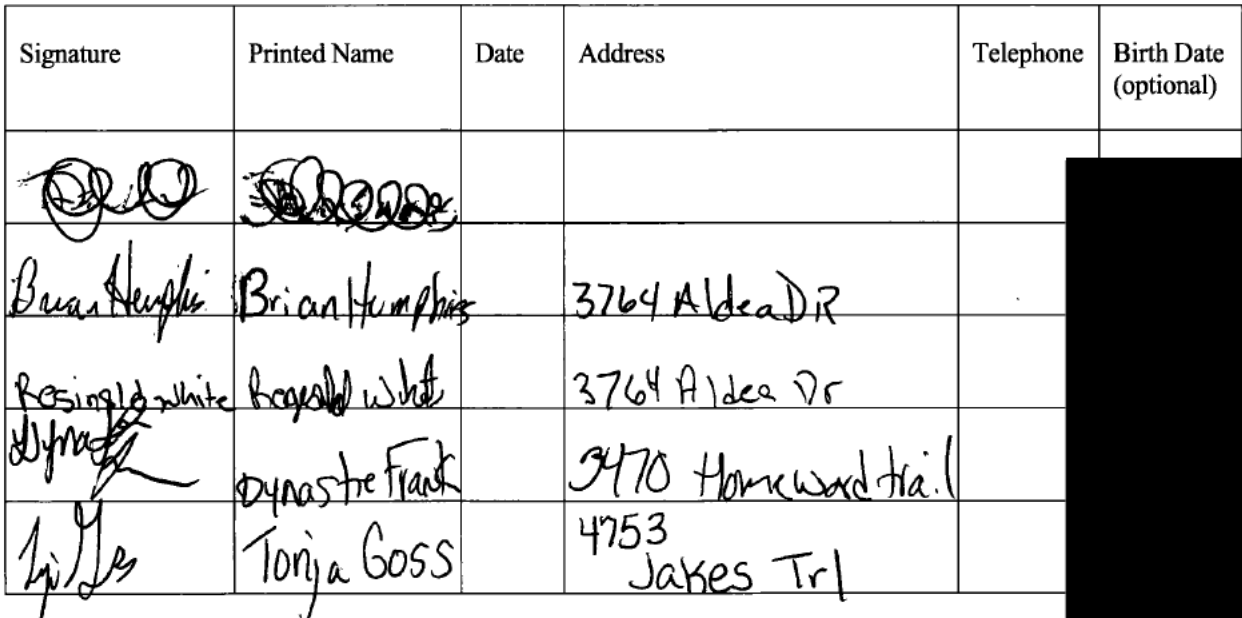 Signature Printed Name Date Address Telephone Birth Date
(optional)
Brian Humphis Brian Humphis 3764 Aldea DR
Resingld white 3764 Aldea Dr
Dynastie Frank 3470 Homeward trail
Tonja Goss 4753
Jakes Trl